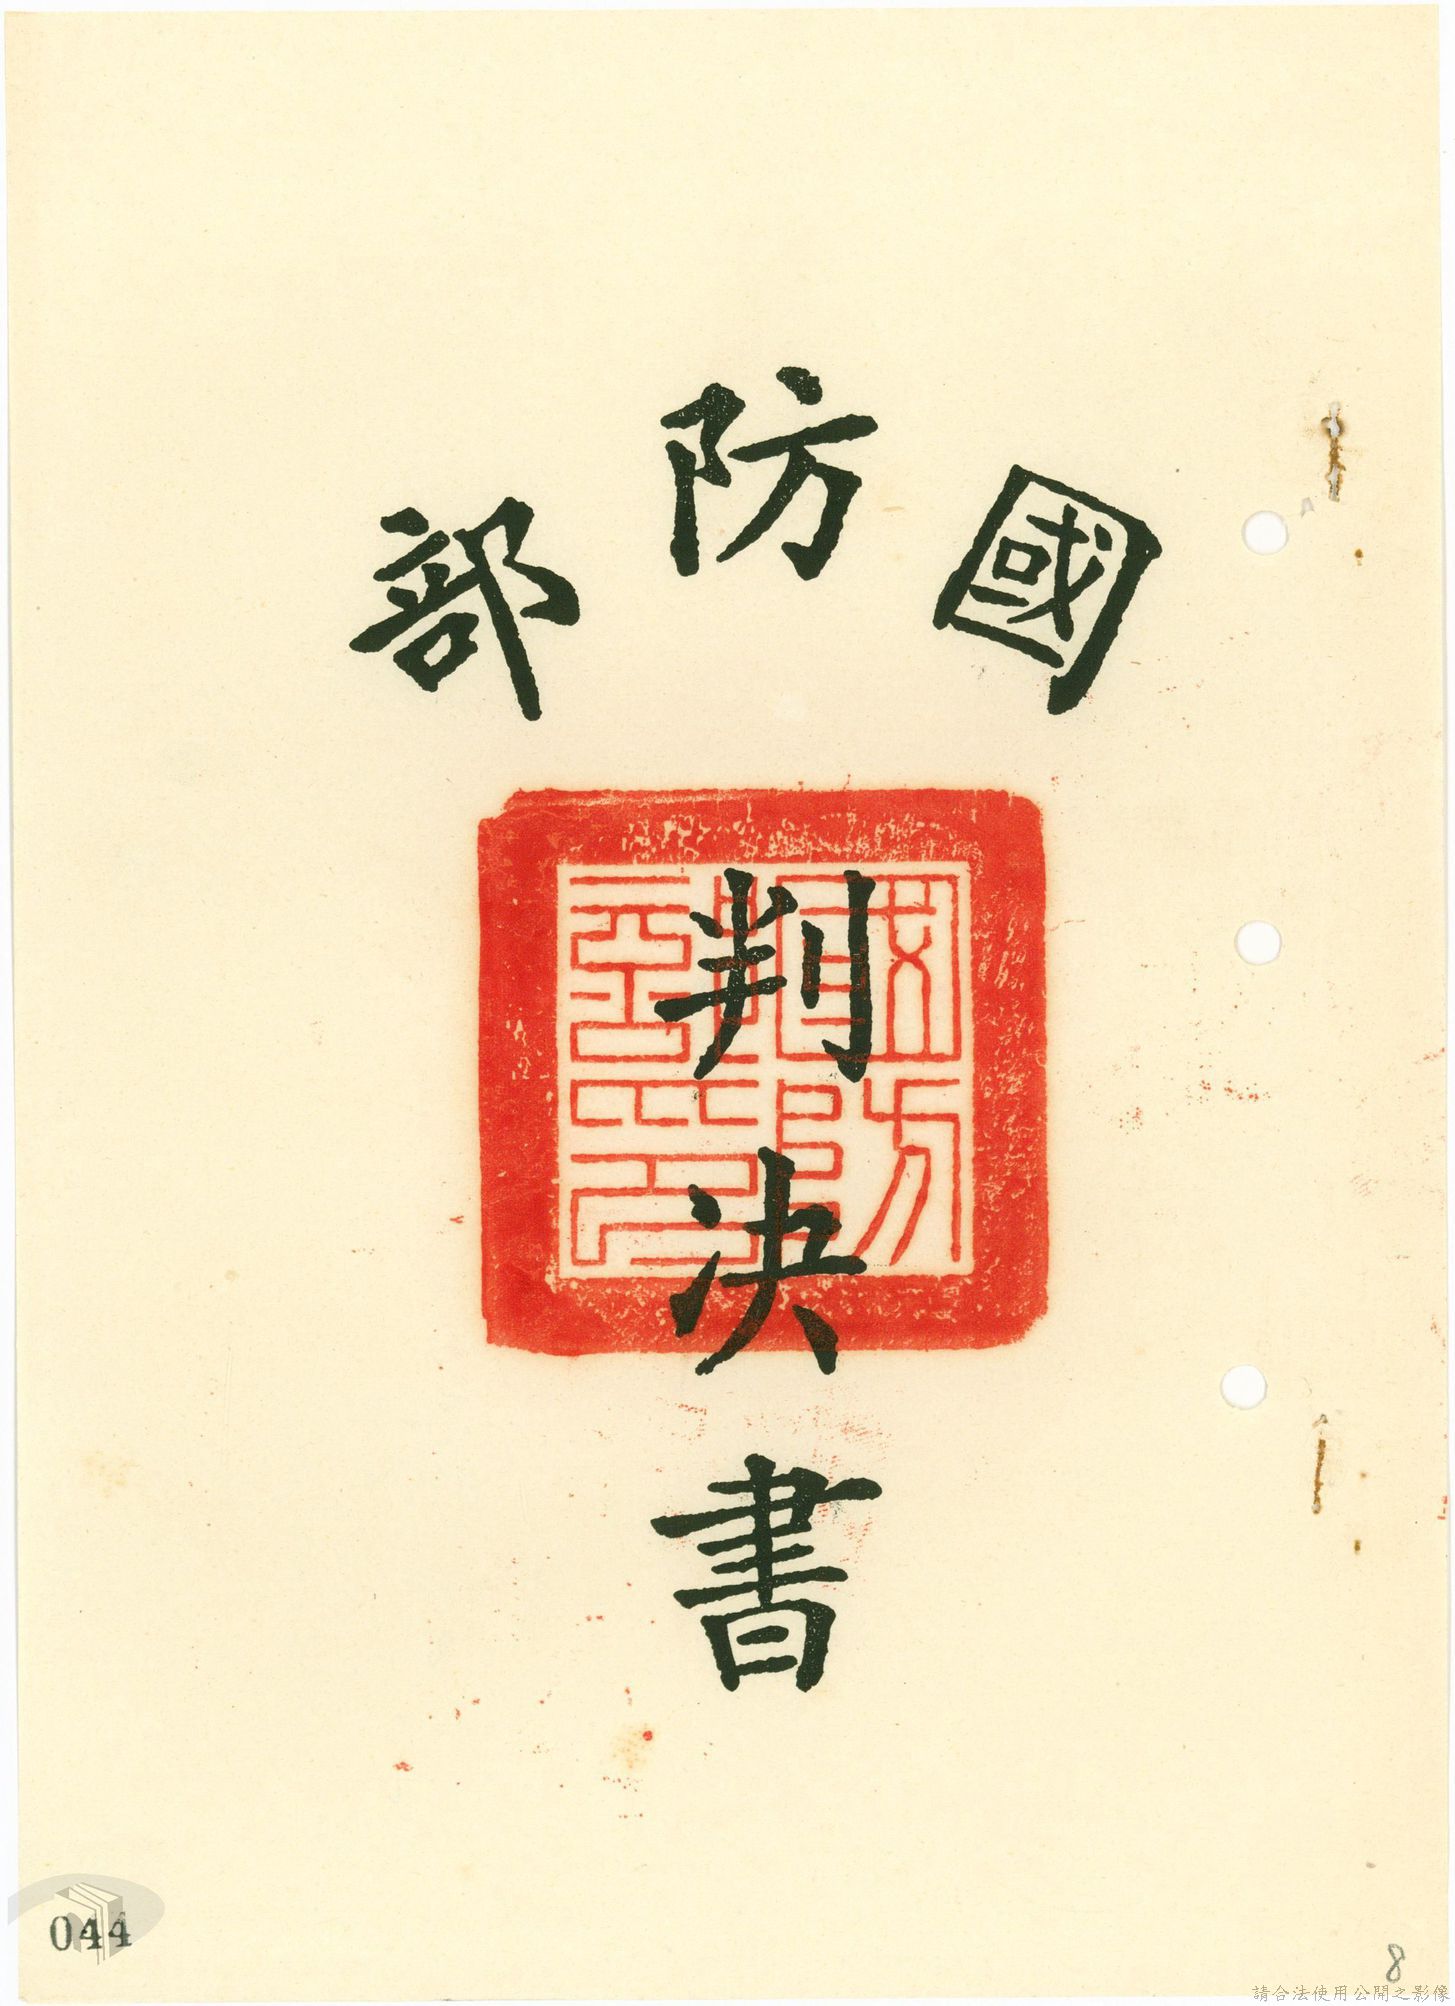 國防部
判決書
044
8
請合法使用公開之影像